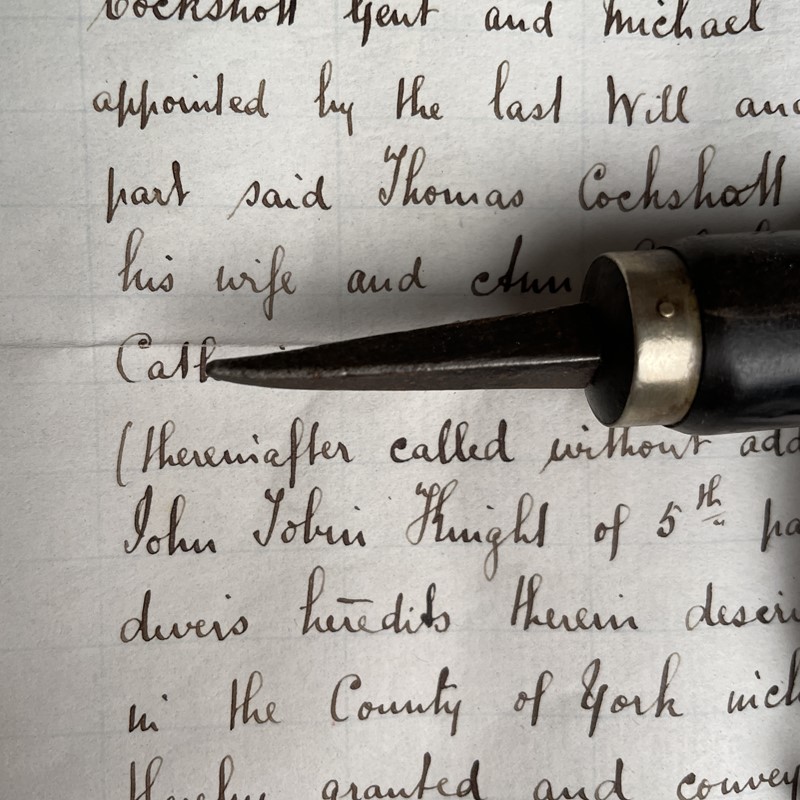 Cockshott Gent and Michael
appointed by the last Will and
part said Thomas Cockshott
his wife and Ann
(thereinafter called without
John Tobin Knight of 5th
divers heredits therein
in the County of York
thereby granted and